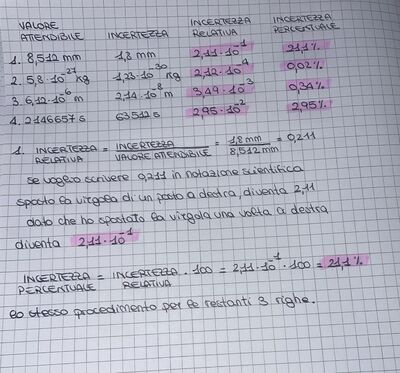 VALORE ATTENDIBILE INCERTEZZA INCERTEZZA RELATIVA INCERTEZZA PERCENTUALE
1. 8,512 mm 1,8 mm 2,11·10⁻¹ 21,1%
2. 5,8·10⁻²⁷ kg 1,23·10⁻³⁰ kg 2,12·10⁻⁴ 0,02%
3. 6,12·10⁻⁶ m 2,14·10⁻⁸ m 3,49·10⁻³ 0,34%
4. 2146657 s 63512 s 2,95·10⁻² 2,95%
1. INCERTEZZA RELATIVA = INCERTEZZA / VALORE ATTENDIBILE = 1,8 mm / 8,512 mm = 0,211
se voglio scrivere 0,211 in notazione scientifica
sposto la virgola di un posto a destra, diventa 2,11
dato che ho spostato la virgola una volta a destra
diventa 2,11·10⁻¹
INCERTEZZA PERCENTUALE = INCERTEZZA RELATIVA · 100 = 2,11·10⁻¹ · 100 = 21,1%
lo stesso procedimento per le restanti 3 righe.